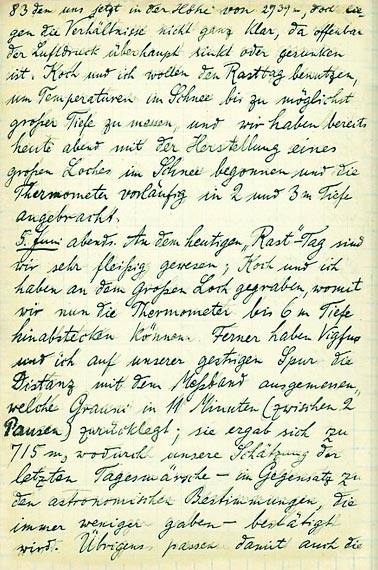 83 den uns jetzt in der Höhe von 2939 m, doch lie-
gen die Verhältnisse nicht ganz klar, da offenbar
der Luftdruck überhaupt sinkt oder gesunken
ist. Koch und ich wollen den Rasttag benutzen,
um Temperaturen im Schnee bis zu möglichst
großer Tiefe zu messen, und wir haben bereits
heute abend mit der Herstellung eines
großen Loches im Schnee begonnen und die
Thermometer vorläufig in 2 und 3 m Tiefe
angebracht.
5. Juni abends. An dem heutigen „Rast"-Tag sind
wir sehr fleißig gewesen; Koch und ich
haben an dem Großen Loch gegraben, womit
wir nun die Thermometer bis 6 m Tiefe
hinabstecken können. Ferner haben Vigfus
und ich auf unserer gestrigen Spur die
Distanz mit dem Meßband ausgemessen,
welche Grauni in 11 Minuten (zwischen 2
Pausen) zurücklegt; sie ergab sich zu
715 m, wodurch unsere Schätzung der
letzten Tagesmärsche – im Gegensatz zu
den astronomischen Bestimmungen, die
immer weniger gaben – bestätigt
wird. Übrigens passen damit auch die